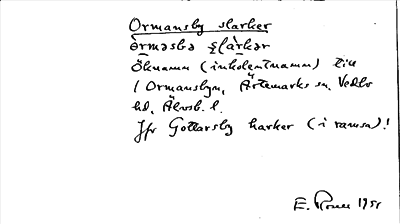 Ormansby slarker
ə̀rməsbə slàrkər
Öknamn (inkolentnamn) till
/ Ormansbyn, Ärtemarks sn, Vedbo
hd, Älvsb. l.
Jfr Gottarsby harker (i ramsa)!
E. 1951